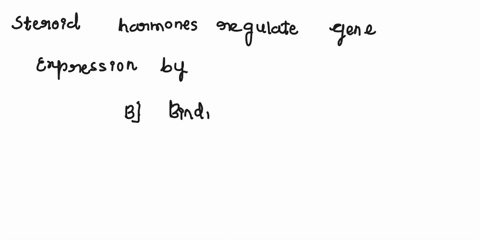 Steroid hormones regulate gene
Expression by
B] Bind,